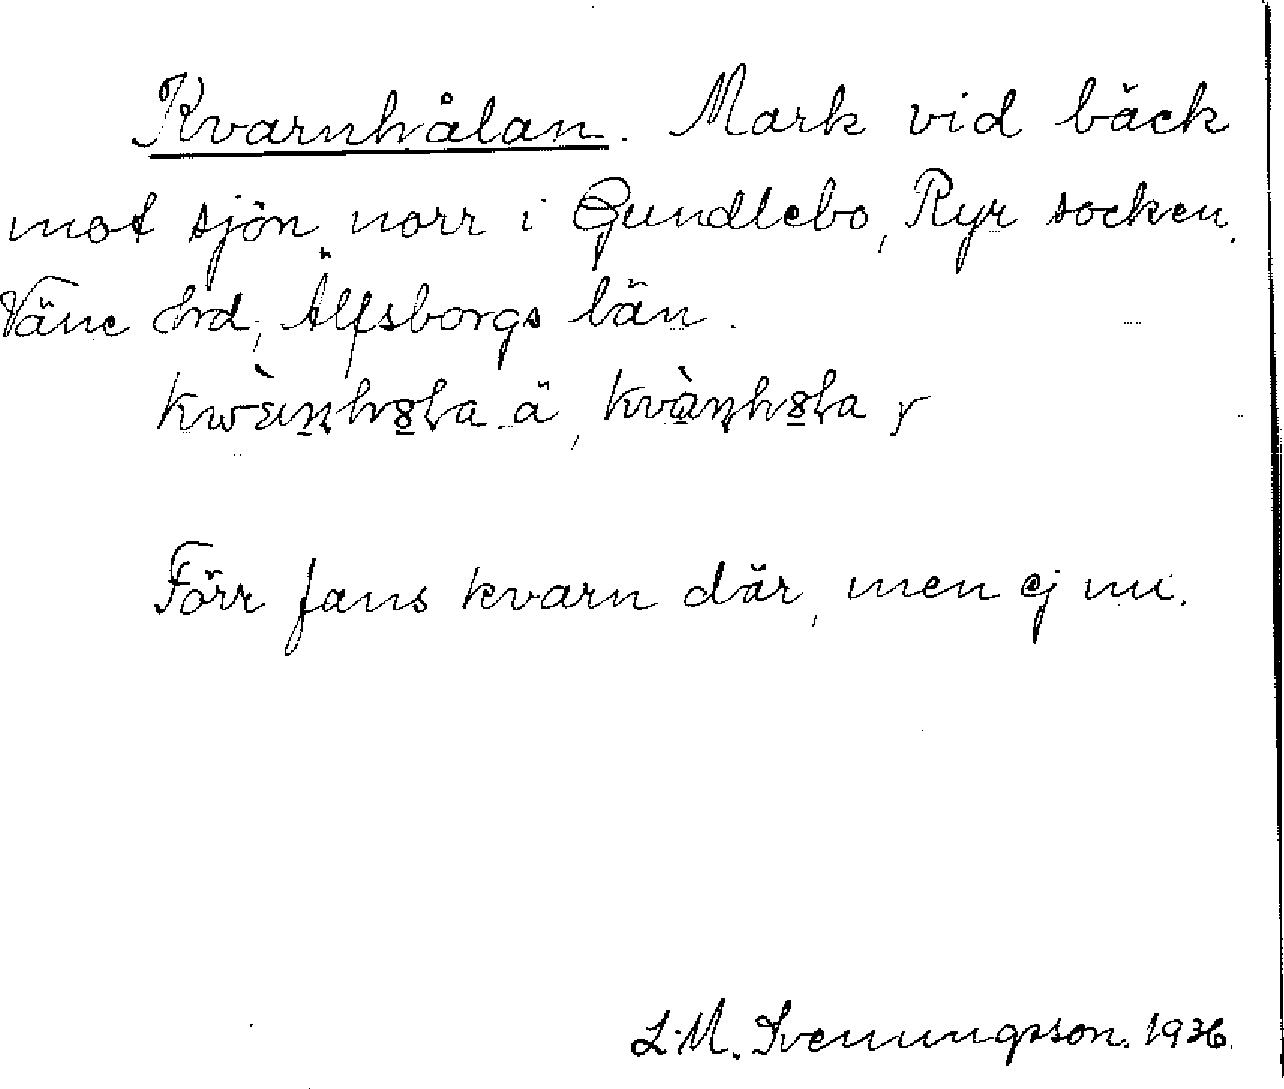 Kvarnhålan. Mark vid bäck
mot sjön norr i Gundlebo, Ryr socken.
Väne hrd, Älfsborgs län.
ä, y
Förr fans kvarn där, men ej nu.
L.M. Svenungsson. 1936